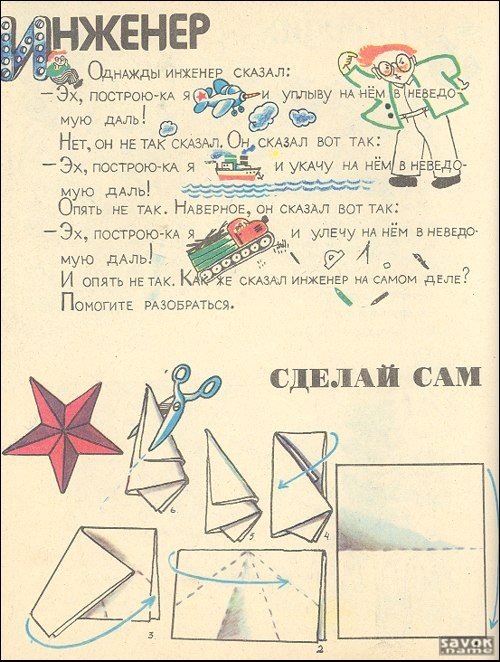 ИНЖЕНЕР
Однажды инженер сказал:
— Эх, построю-ка я и уплыву на нём в неведо-
мую даль!
Нет, он не так сказал. Он сказал вот так:
— Эх, построю-ка я и укачу на нём в неведо-
мую даль!
Опять не так. Наверное, он сказал вот так:
— Эх, построю-ка я и улечу на нём в неведо-
мую даль!
И опять не так. Как же сказал инженер на самом деле?
Помогите разобраться.
СДЕЛАЙ САМ
6.
5.
4.
3.
2
savok
.name